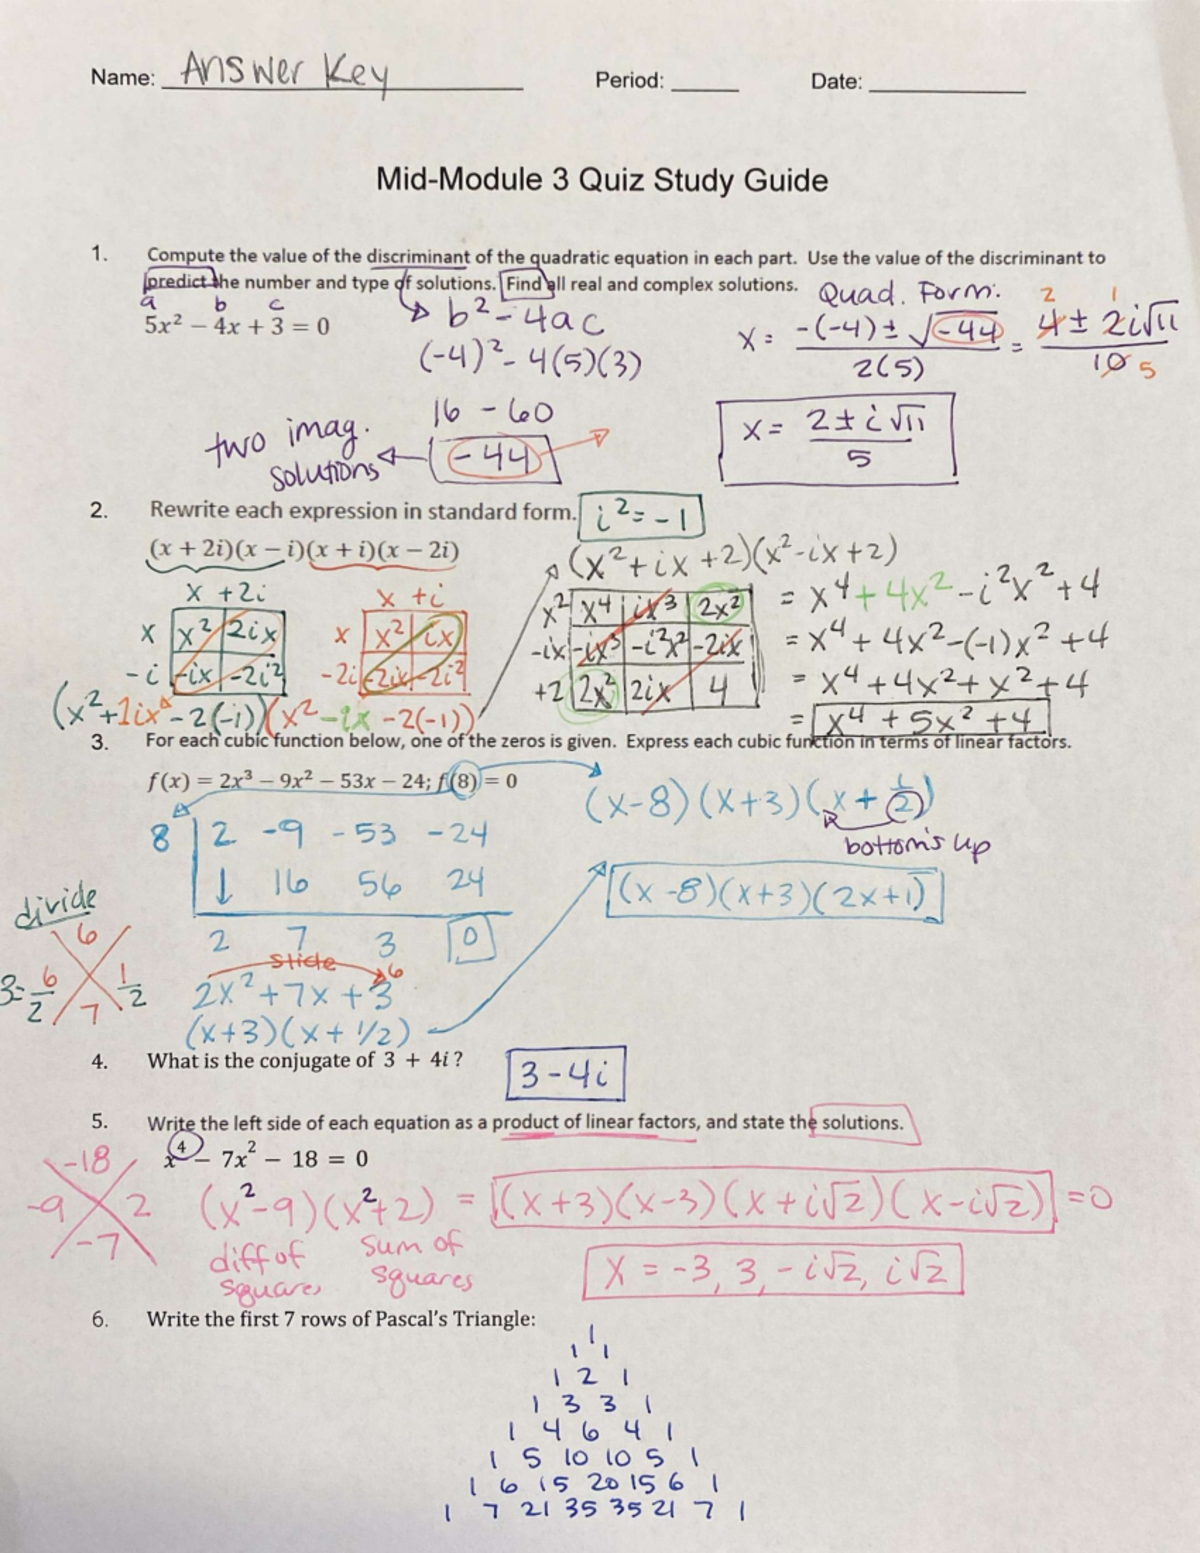 Name: Answer Key Period: Date:
Mid-Module 3 Quiz Study Guide
1. Compute the value of the discriminant of the quadratic equation in each part. Use the value of the discriminant to
predict the number and type of solutions. Find all real and complex solutions.
a b c
5x² − 4x + 3 = 0
b² - 4ac
(-4)² - 4(5)(3)
16 - 60
-44
two imag.
solutions
Quad. Form:
x = -(-4) ± √-44 / 2(5) = 4 ± 2i√11 / 10
2 1
5
x = 2 ± i√11 / 5
2. Rewrite each expression in standard form. i² = -1
(x + 2i)(x − i)(x + i)(x − 2i)
x +2i
x x² 2ix
-i -ix -2i²
x +i
x x² ix
-2i -2ix -2i²
(x²+1ix - 2(-1))(x² - ix - 2(-1))
(x² + ix + 2)(x² - ix + 2)
x² x⁴ ix³ 2x²
-ix -ix³ -i²x² -2ix
+2 2x² 2ix 4
= x⁴ + 4x² - i²x² + 4
= x⁴ + 4x² - (-1)x² + 4
= x⁴ + 4x² + x² + 4
= x⁴ + 5x² + 4
3. For each cubic function below, one of the zeros is given. Express each cubic function in terms of linear factors.
f(x) = 2x³ − 9x² − 53x − 24; f(8) = 0
8 2 -9 -53 -24
↓ 16 56 24
2 7 3 0
slide
6
2x² + 7x + 3
(x+3)(x+ 1/2)
divide
6
3 = 6/2 1/2
7
(x-8)(x+3)(x + 1/2)
bottom's up
(x-8)(x+3)(2x+1)
4. What is the conjugate of 3 + 4i ? 3 - 4i
5. Write the left side of each equation as a product of linear factors, and state the solutions.
x⁴ − 7x² − 18 = 0
-18
-9 2
-7
(x²-9)(x²+2) = (x+3)(x-3)(x+i√2)(x-i√2) = 0
diff of
squares
sum of
squares
x = -3, 3, -i√2, i√2
6. Write the first 7 rows of Pascal's Triangle:
1
1 1
1 2 1
1 3 3 1
1 4 6 4 1
1 5 10 10 5 1
1 6 15 20 15 6 1
1 7 21 35 35 21 7 1